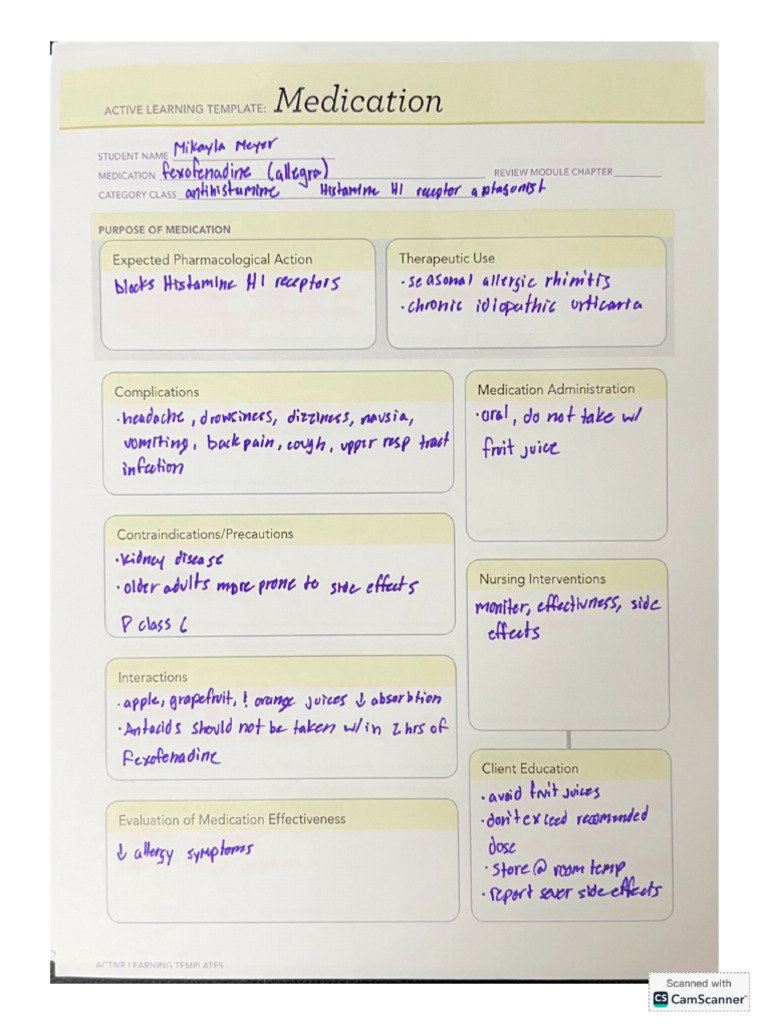 ACTIVE LEARNING TEMPLATE: Medication
STUDENT NAME Mikayla Meyer
MEDICATION fexofenadine (allegra) REVIEW MODULE CHAPTER
CATEGORY CLASS antihistumine Histamine H1 receptor antagonist
PURPOSE OF MEDICATION
Expected Pharmacological Action
blocks Histamine H1 receptors
Therapeutic Use
• seasonal allergic rhinitis
• chronic idiopathic urticaria
Complications
• headache, drowsiness, dizziness, nausia,
vomiting, back pain, cough, upper resp tract
infection
Medication Administration
• oral, do not take w/
fruit juice
Contraindications/Precautions
• kidney disease
• older adults more prone to side effects
P class C
Nursing Interventions
moniter, effectivness, side
effects
Interactions
• apple, grapefruit, & orange juices ↓ absorbtion
• Antacids should not be taken w/in 2 hrs of
Fexofenadine
Client Education
• avoid fruit juices
• don't exceed recomended
dose
• store @ room temp
• report sever side effects
Evaluation of Medication Effectiveness
↓ allergy symptoms
ACTIVE LEARNING TEMPLATES
Scanned with
CS CamScanner